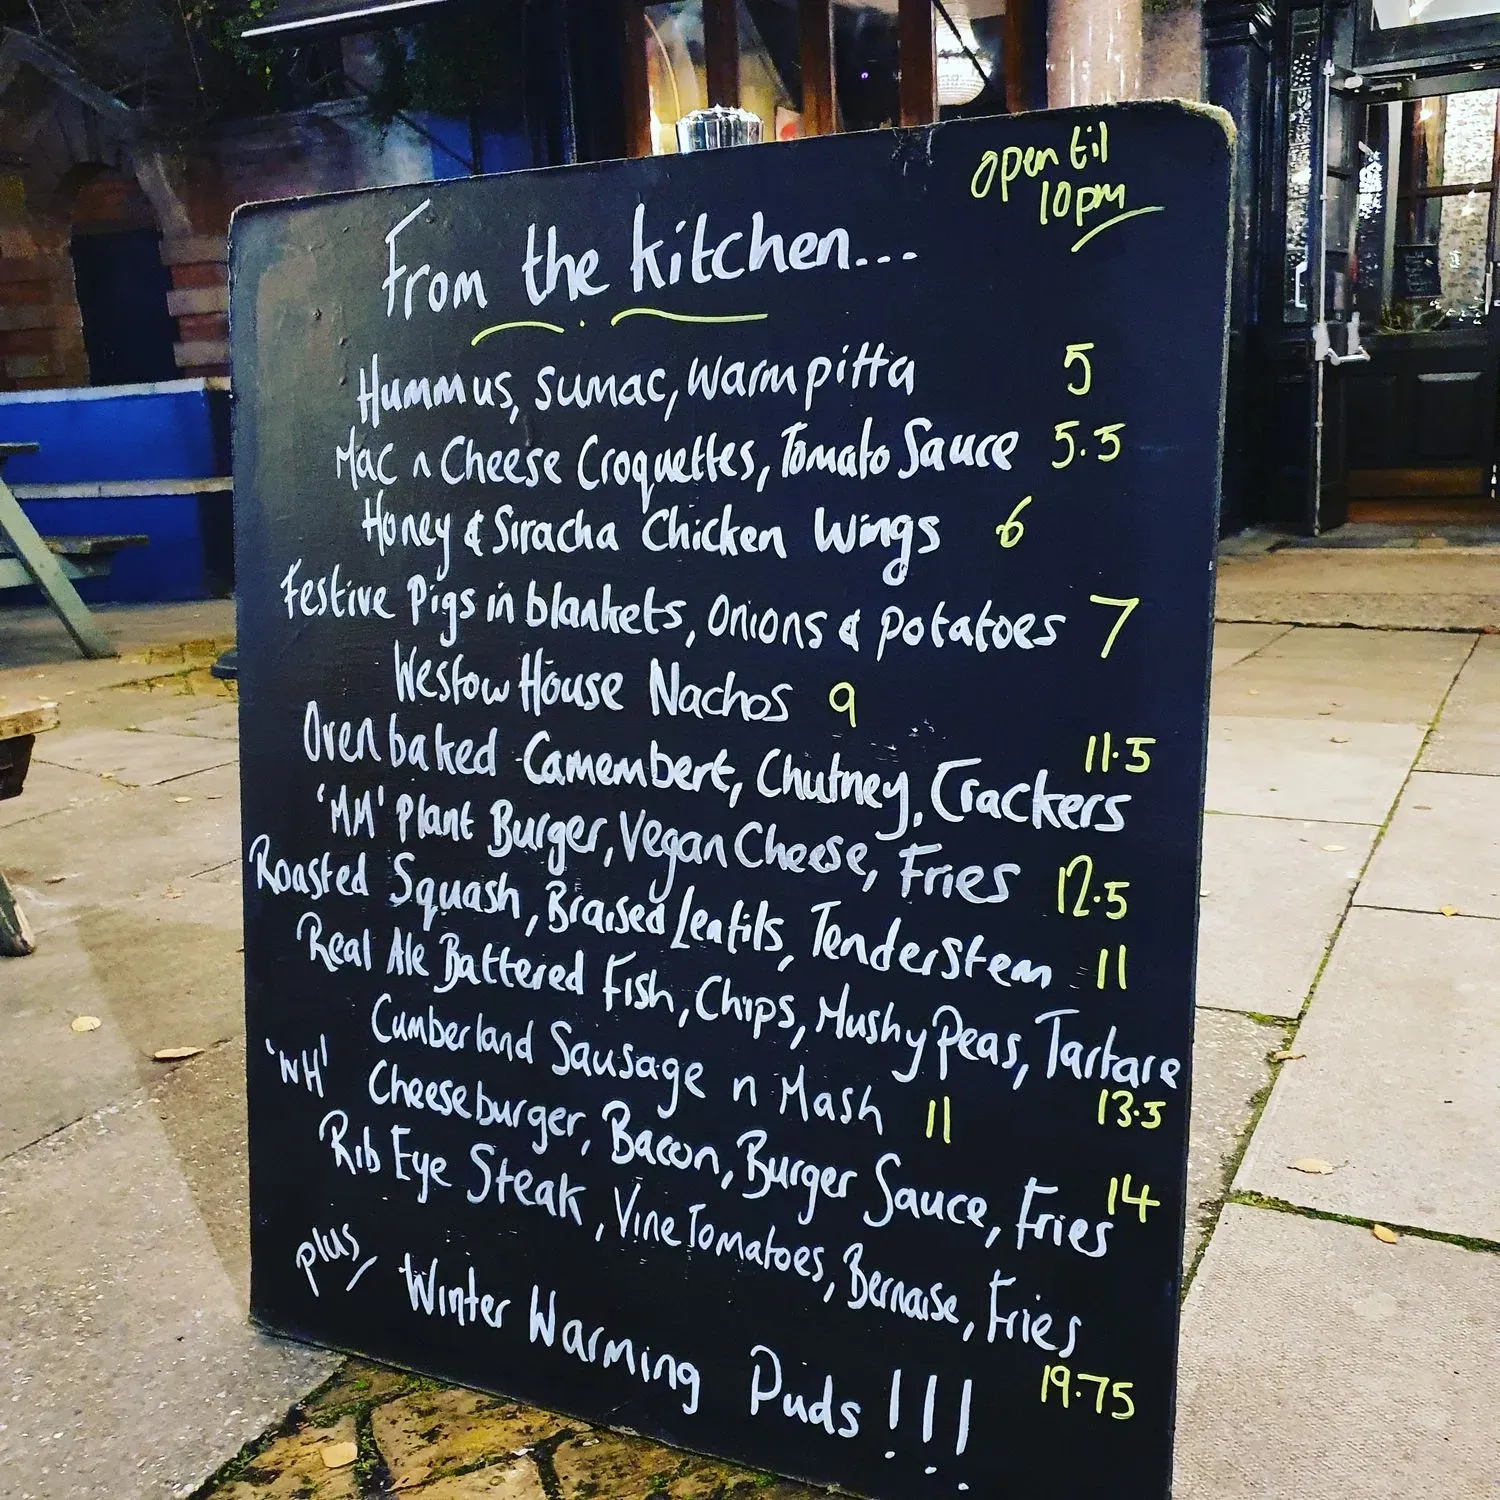 open til
10pm
From the kitchen...
Hummus, sumac, warm pitta 5
Mac n Cheese Croquettes, Tomato Sauce 5.5
Honey & Siracha Chicken Wings 6
Festive Pigs in blankets, Onions & potatoes 7
Westow House Nachos 9
Oven baked Camembert, Chutney, Crackers 11.5
'MM' Plant Burger, Vegan Cheese, Fries 12.5
Roasted Squash, Braised Lentils, Tenderstem 11
Real Ale Battered Fish, Chips, Mushy Peas, Tartare 13.5
Cumberland Sausage n Mash 11
'WH' Cheeseburger, Bacon, Burger Sauce, Fries 14
Rib Eye Steak, Vine Tomatoes, Bernaise, Fries 19.75
plus, Winter Warming Puds!!!